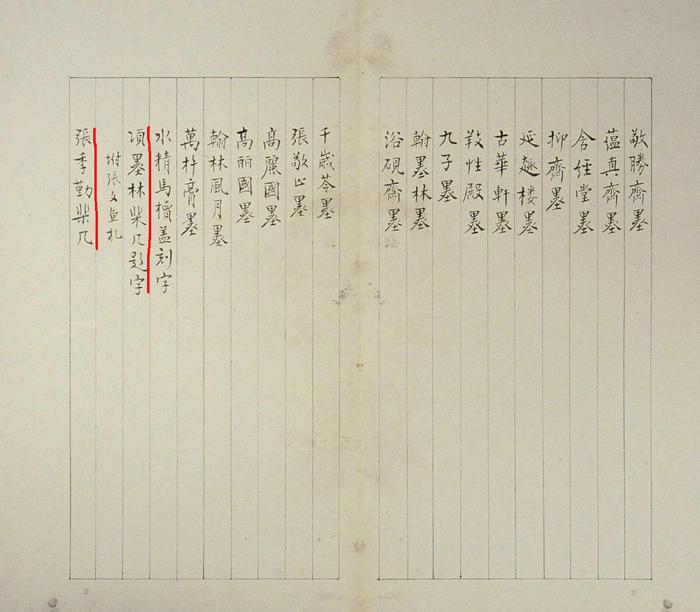 敬勝齊墨
蘊真齊墨
含經堂墨
抑齊墨
延趣楼墨
古華軒墨
敎性殿墨
九子墨
翰墨林墨
浴硯齊墨
千歲苓墨
張敬止墨
高麗國墨
高丽國墨
翰林風月墨
萬杵膏墨
水精馬櫝盖刻字
項墨林棐几題字
坿張文魚札
張季勤棐几